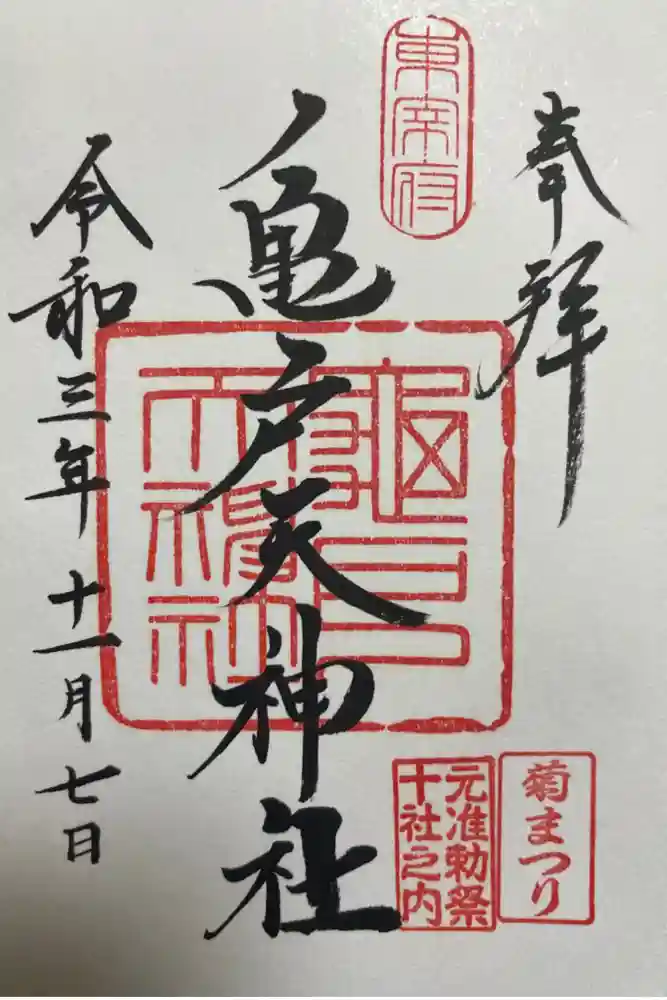 奉拝
東宰府
亀戸天神社
令和三年十一月七日
元准勅祭
十社之内
菊まつり